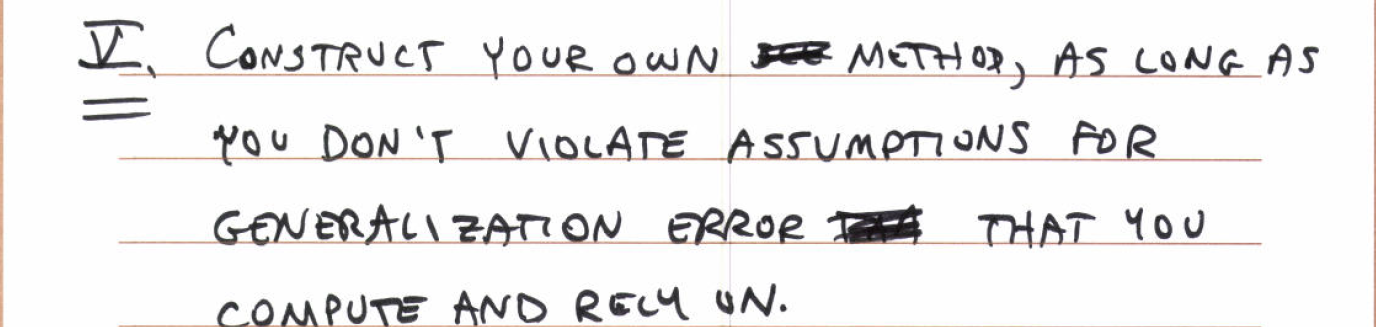 V. CONSTRUCT YOUR OWN METHOD, AS LONG AS
YOU DON'T VIOLATE ASSUMPTIONS FOR
GENERALIZATION ERROR THAT YOU
COMPUTE AND RELY ON.